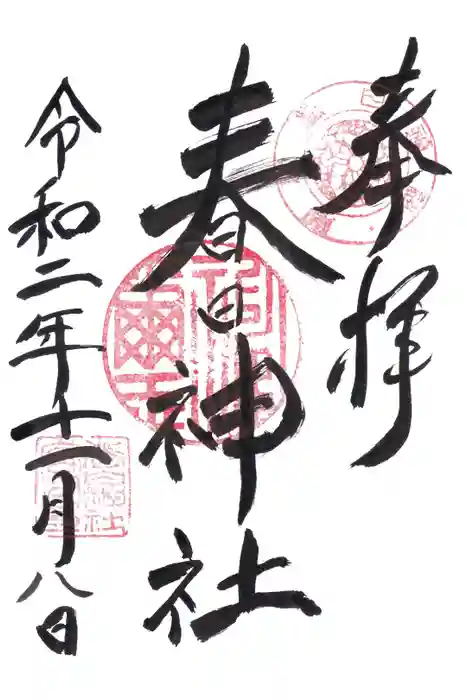 奉拝
春日神社
令和二年十一月八日